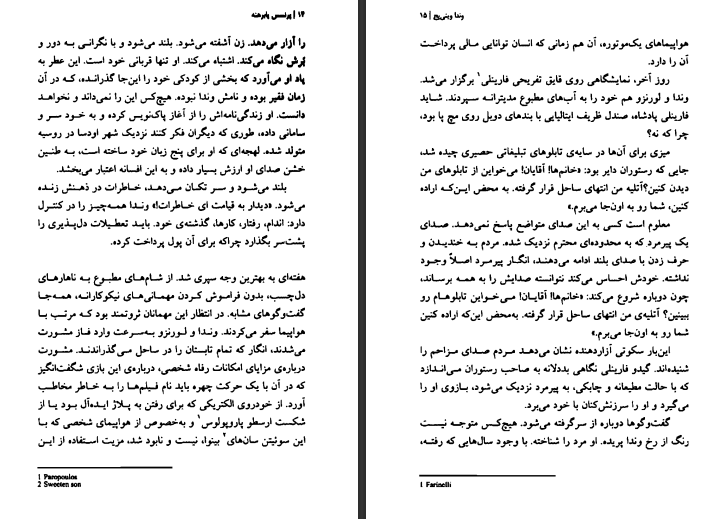 ۱۴ | پرنسس پابرهنه
را آزار می‌دهد. زن آشفته می‌شود. بلند می‌شود و با نگرانی به دور و
برش نگاه می‌کند. اشتباه می‌کند. او تنها قربانی خود است. این عطر به
یاد او می‌آورد که بخشی از کودکی خود را این‌جا گذرانده، که در آن
زمان فقیر بوده و نامش وندا نبوده. هیچ‌کس این را نمی‌داند و نخواهد
دانست. او زندگی‌نامه‌اش را از آغاز پاک‌نویس کرده و به خود سر و
سامانی داده، طوری که دیگران فکر کنند نزدیک شهر اودسا در روسیه
متولد شده. لهجه‌ای که او برای پنج زبان خود ساخته است، به طنین
خشن صدای او ارزش بسیار داده و به این افسانه اعتبار می‌بخشد.
بلند می‌شود و سر تکان می‌دهد، خاطرات در ذهنش زنده
می‌شود. «دیدار به قیامت ای خاطرات!» وندا همه‌چیز را در کنترل
دارد: اندام، رفتار، کارها، گذشته‌ی خود. باید تعطیلات دل‌پذیری را
پشت‌سر بگذارد چراکه برای آن پول پرداخت کرده.
هفته‌ای به بهترین وجه سپری شد. از شام‌های مطبوع به ناهارهای
دل‌چسب، بدون فراموش کردن مهمانی‌های نیکوکارانه، همه‌جا
گفت‌وگوهای مشابه. در انتظار این مهمانان ثروتمند بود که مرتب با
هواپیما سفر می‌کردند. وندا و لورنزو به‌سرعت وارد فاز مشورت
می‌شدند، انگار که تمام تابستان را در ساحل می‌گذراندند. مشورت
درباره‌ی مزایای امکانات رفاه شخصی، درباره‌ی این بازی شگفت‌انگیز
که در آن با یک حرکت چهره باید نام فیلم‌ها را به خاطر مخاطب
آورد. از خودروی الکتریکی که برای رفتن به پلاژ ایده‌آل بود یا از
شکست ارسطو پاروپولوس۱ و به‌خصوص از هواپیمای شخصی که با
این سوئیتن سان‌های۲ بینوا، نیست و نابود شد، مزیت استفاده از این
1 Paropoulos
2 Sweeten son
وندا وینی‌پج | ۱۵
هواپیماهای یک‌موتوره، آن هم زمانی که انسان توانایی مالی پرداخت
آن را دارد.
روز آخر، نمایشگاهی روی قایق تفریحی فارینلی۱ برگزار می‌شد.
وندا و لورنزو هم خود را به آب‌های مطبوع مدیترانه سپردند. شاید
فارینلی پادشاه، صندل ظریف ایتالیایی با بندهای دوبل روی مچ پا بود،
چرا که نه؟
میزی برای آن‌ها در سایه‌ی تابلوهای تبلیغاتی حصیری چیده شد،
جایی که رستوران دایر بود: «خانم‌ها! آقایان! می‌خواین از تابلوهای من
دیدن کنین؟ آتلیه من انتهای ساحل قرار گرفته. به محض این‌که اراده
کنین، شما رو به اون‌جا می‌برم.»
معلوم است کسی به این صدای متواضع پاسخ نمی‌دهد. صدای
یک پیرمرد که به محدوده‌ای محترم نزدیک شده. مردم به خندیدن و
حرف زدن با صدای بلند ادامه می‌دهند، انگار پیرمرد اصلاً وجود
نداشته. خودش احساس می‌کند نتوانسته صدایش را به همه برساند،
چون دوباره شروع می‌کند: «خانم‌ها! آقایان! می‌خواین تابلوهام رو
ببینین؟ آتلیه‌ی من انتهای ساحل قرار گرفته. به‌محض این‌که اراده کنین
شما رو به اون‌جا می‌برم.»
این‌بار سکوتی آزاردهنده نشان می‌دهد مردم صدای مزاحم را
شنیده‌اند. گیدو فارینلی نگاهی بددلانه به صاحب رستوران می‌اندازد
که با حالت مطیعانه و چابکی، به پیرمرد نزدیک می‌شود، بازوی او را
می‌گیرد و او را سرزنش‌کنان با خود می‌برد.
گفت‌وگوها دوباره از سرگرفته می‌شود. هیچ‌کس متوجه نیست
رنگ از رخ وندا پریده. او مرد را شناخته. با وجود سال‌هایی که رفته،
1 Farinelli